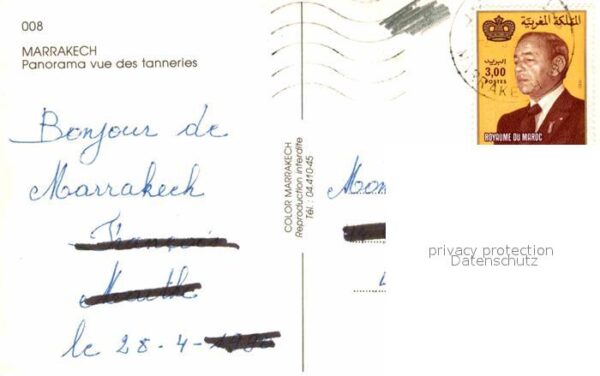 008
MARRAKECH
Panorama vue des tanneries
Bonjour de
Marrakech
le 28-4-
COLOR MARRAKECH
Reproduction interdite
Tél.: 04.410-45
المملكة المغربية
البريد
3,00
POSTES
ROYAUME DU MAROC
privacy protection
Datenschutz